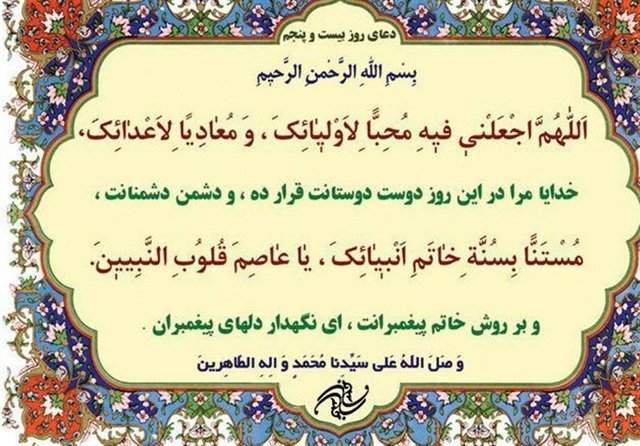 دعای روز بیست و پنجم
بِسْمِ اللهِ الرَّحْمنِ الرَّحیمِ
اَللّهُمَّ اجْعَلْني فيهِ مُحِبًّا لِاَوْلِيائِكَ ، وَ مُعادِيًا لِاَعْدائِكَ،
خدایا مرا در این روز دوست دوستانت قرار ده ، و دشمن دشمنانت ،
مُسْتَنًّا بِسُنَّةِ خاتَمِ اَنْبِيائِكَ ، يا عاصِمَ قُلُوبِ النَّبِيينَ.
و بر روش خاتم پیغمبرانت ، ای نگهدار دلهای پیغمبران .
وَ صَلَ اللهُ عَلی سَیِّدِنا مُحَمَدٍ وَ الِهِ الطّاهِرینَ